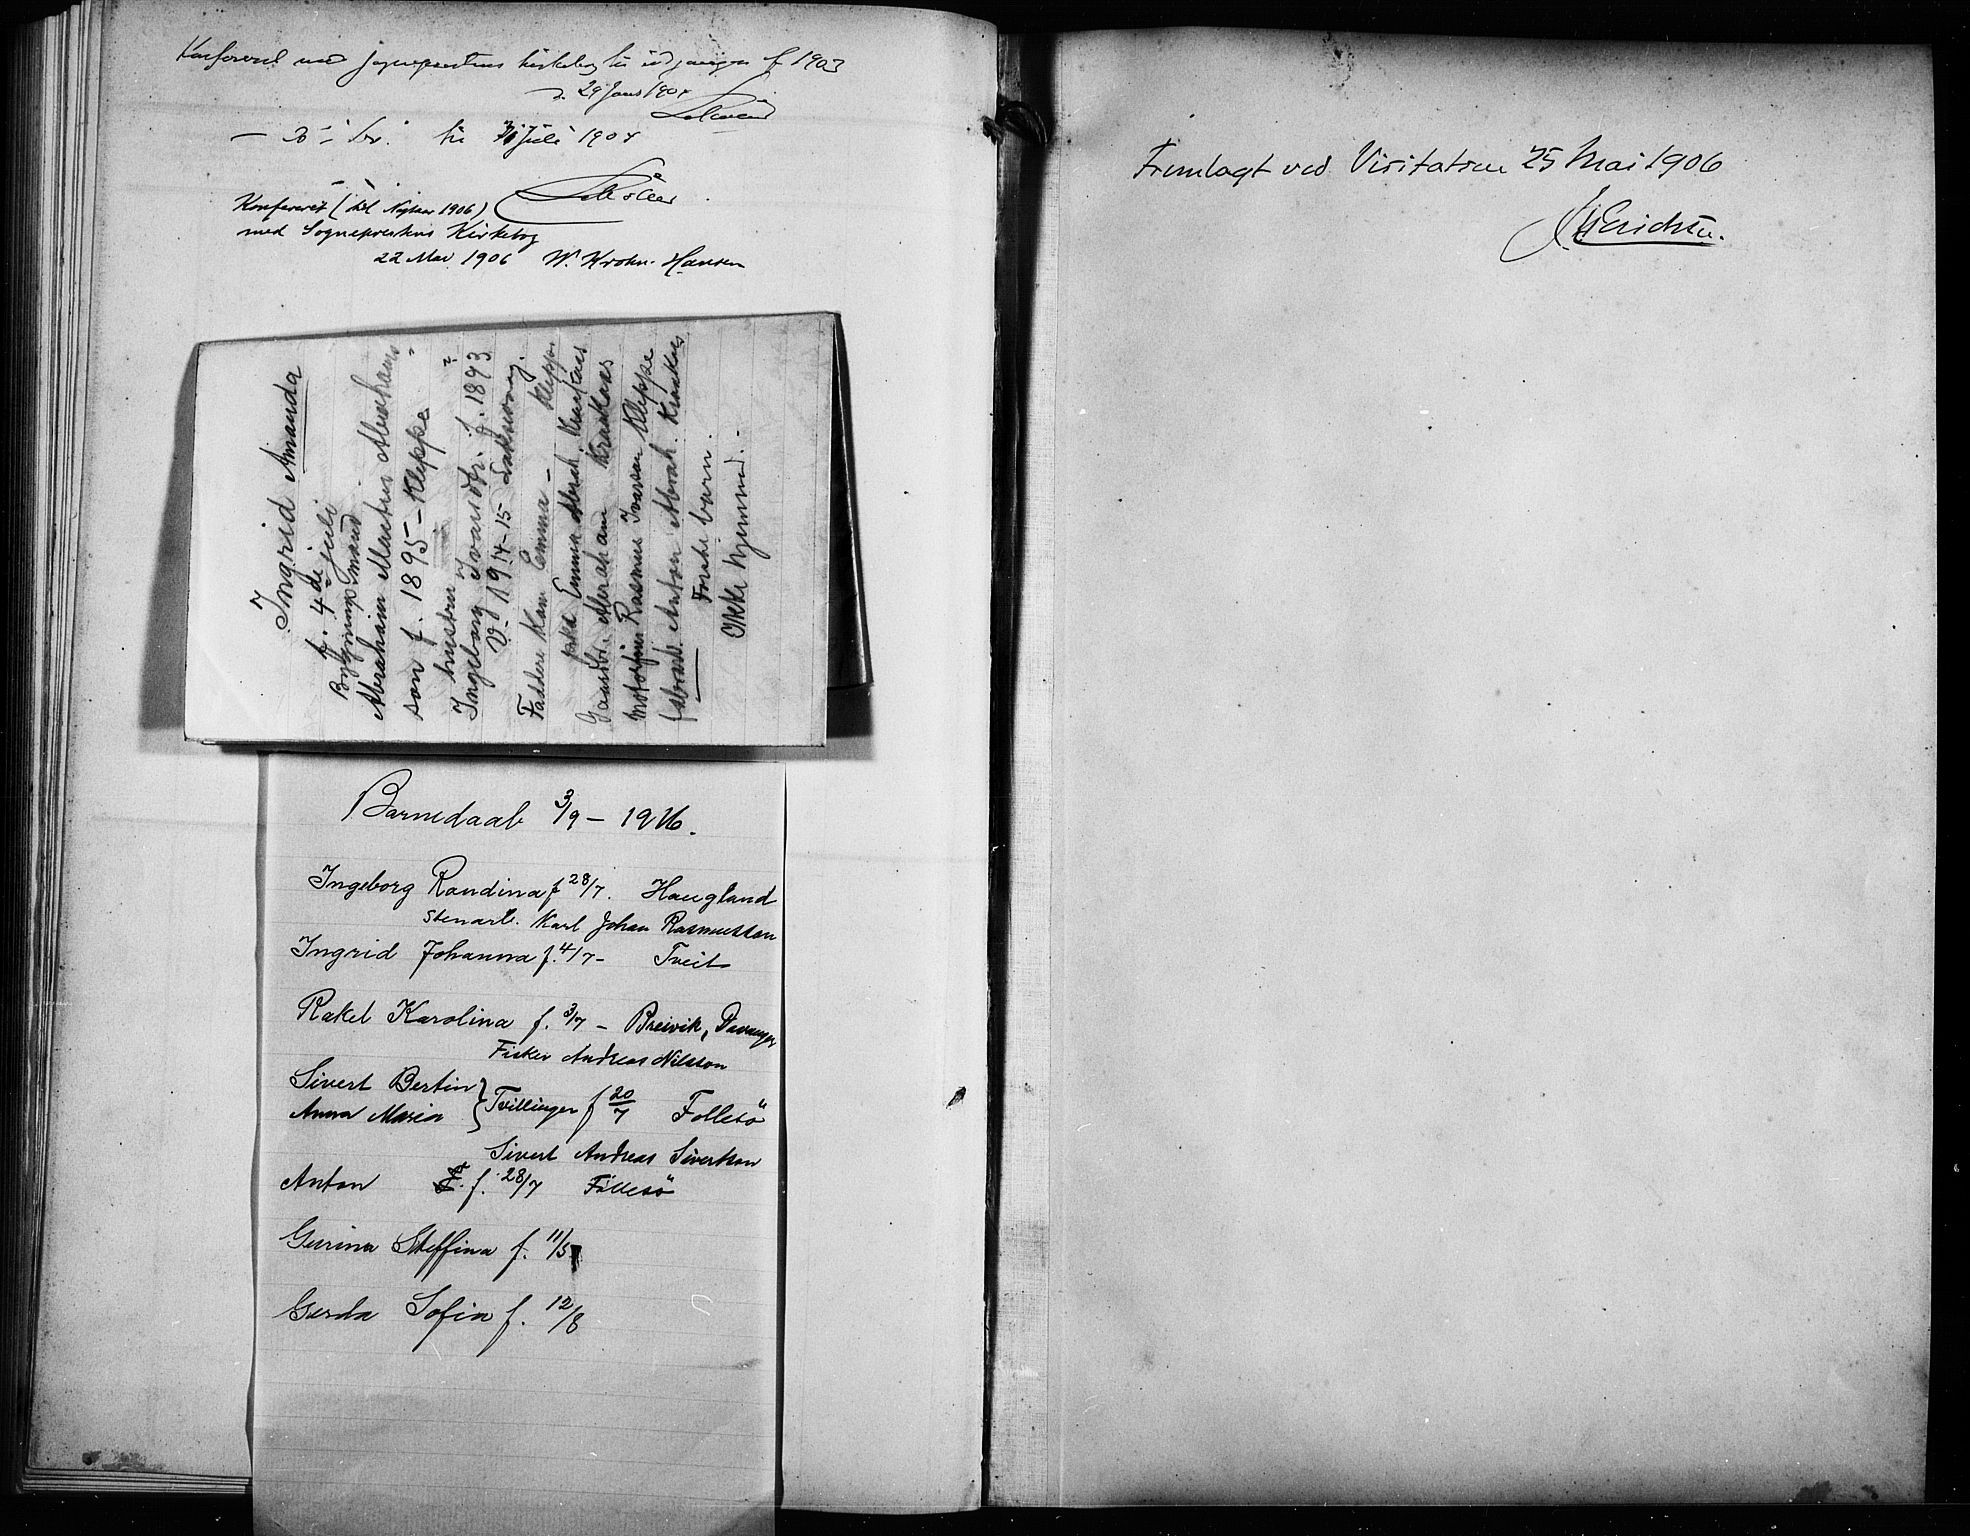 Konfereret med sognepræstens kirkebog til udgangen af 1903
29 Janr 1904
til 31 Juli 1904
Konfereret (til Nytaar 1906)
med Sogneprestens Kirkebog
22 Mai 1906 W. Krohn-Hansen
Ingrid Amanda
f. 4de juli
Bygningsmand
Abraham Martin Abrahams-
son f. 1895 - Kleppe
& hustru
Ingeborg Ivarsdtr. f. 1893
V. 1914-15 Laksevaag.
Faddere Kone Emma - Kleppe
pike Emma Abrah. Kraakaas
Gaardbr. Abraham Kraakaas
Motorfører Rasmus Ivarson Kleppe
Anton Abrah. Kraakaas
barn.
Ikke hjemmed.
Barnedaab 3/9 - 1916.
Ingeborg Randina f 28/7. Haugland
Stenarb. Karl Johan Rasmussen
Ingrid Johanna f. 4/7 - Tveit
Rakel Karolina f. 3/7 - Breivik, Davanger
Fisker Andreas Nilsson
Sivert Bertin
Anna Maria } Tvillinger f 20/7 Follesö
Sivert Andreas Sivertson
Anton f. 28/7 Follesö
Gurina Steffina f. 11/5
Gerda Sofia f. 12/8
Fremlagt ved Visitatsen 25 Mai 1906
J. W. Erichsen.